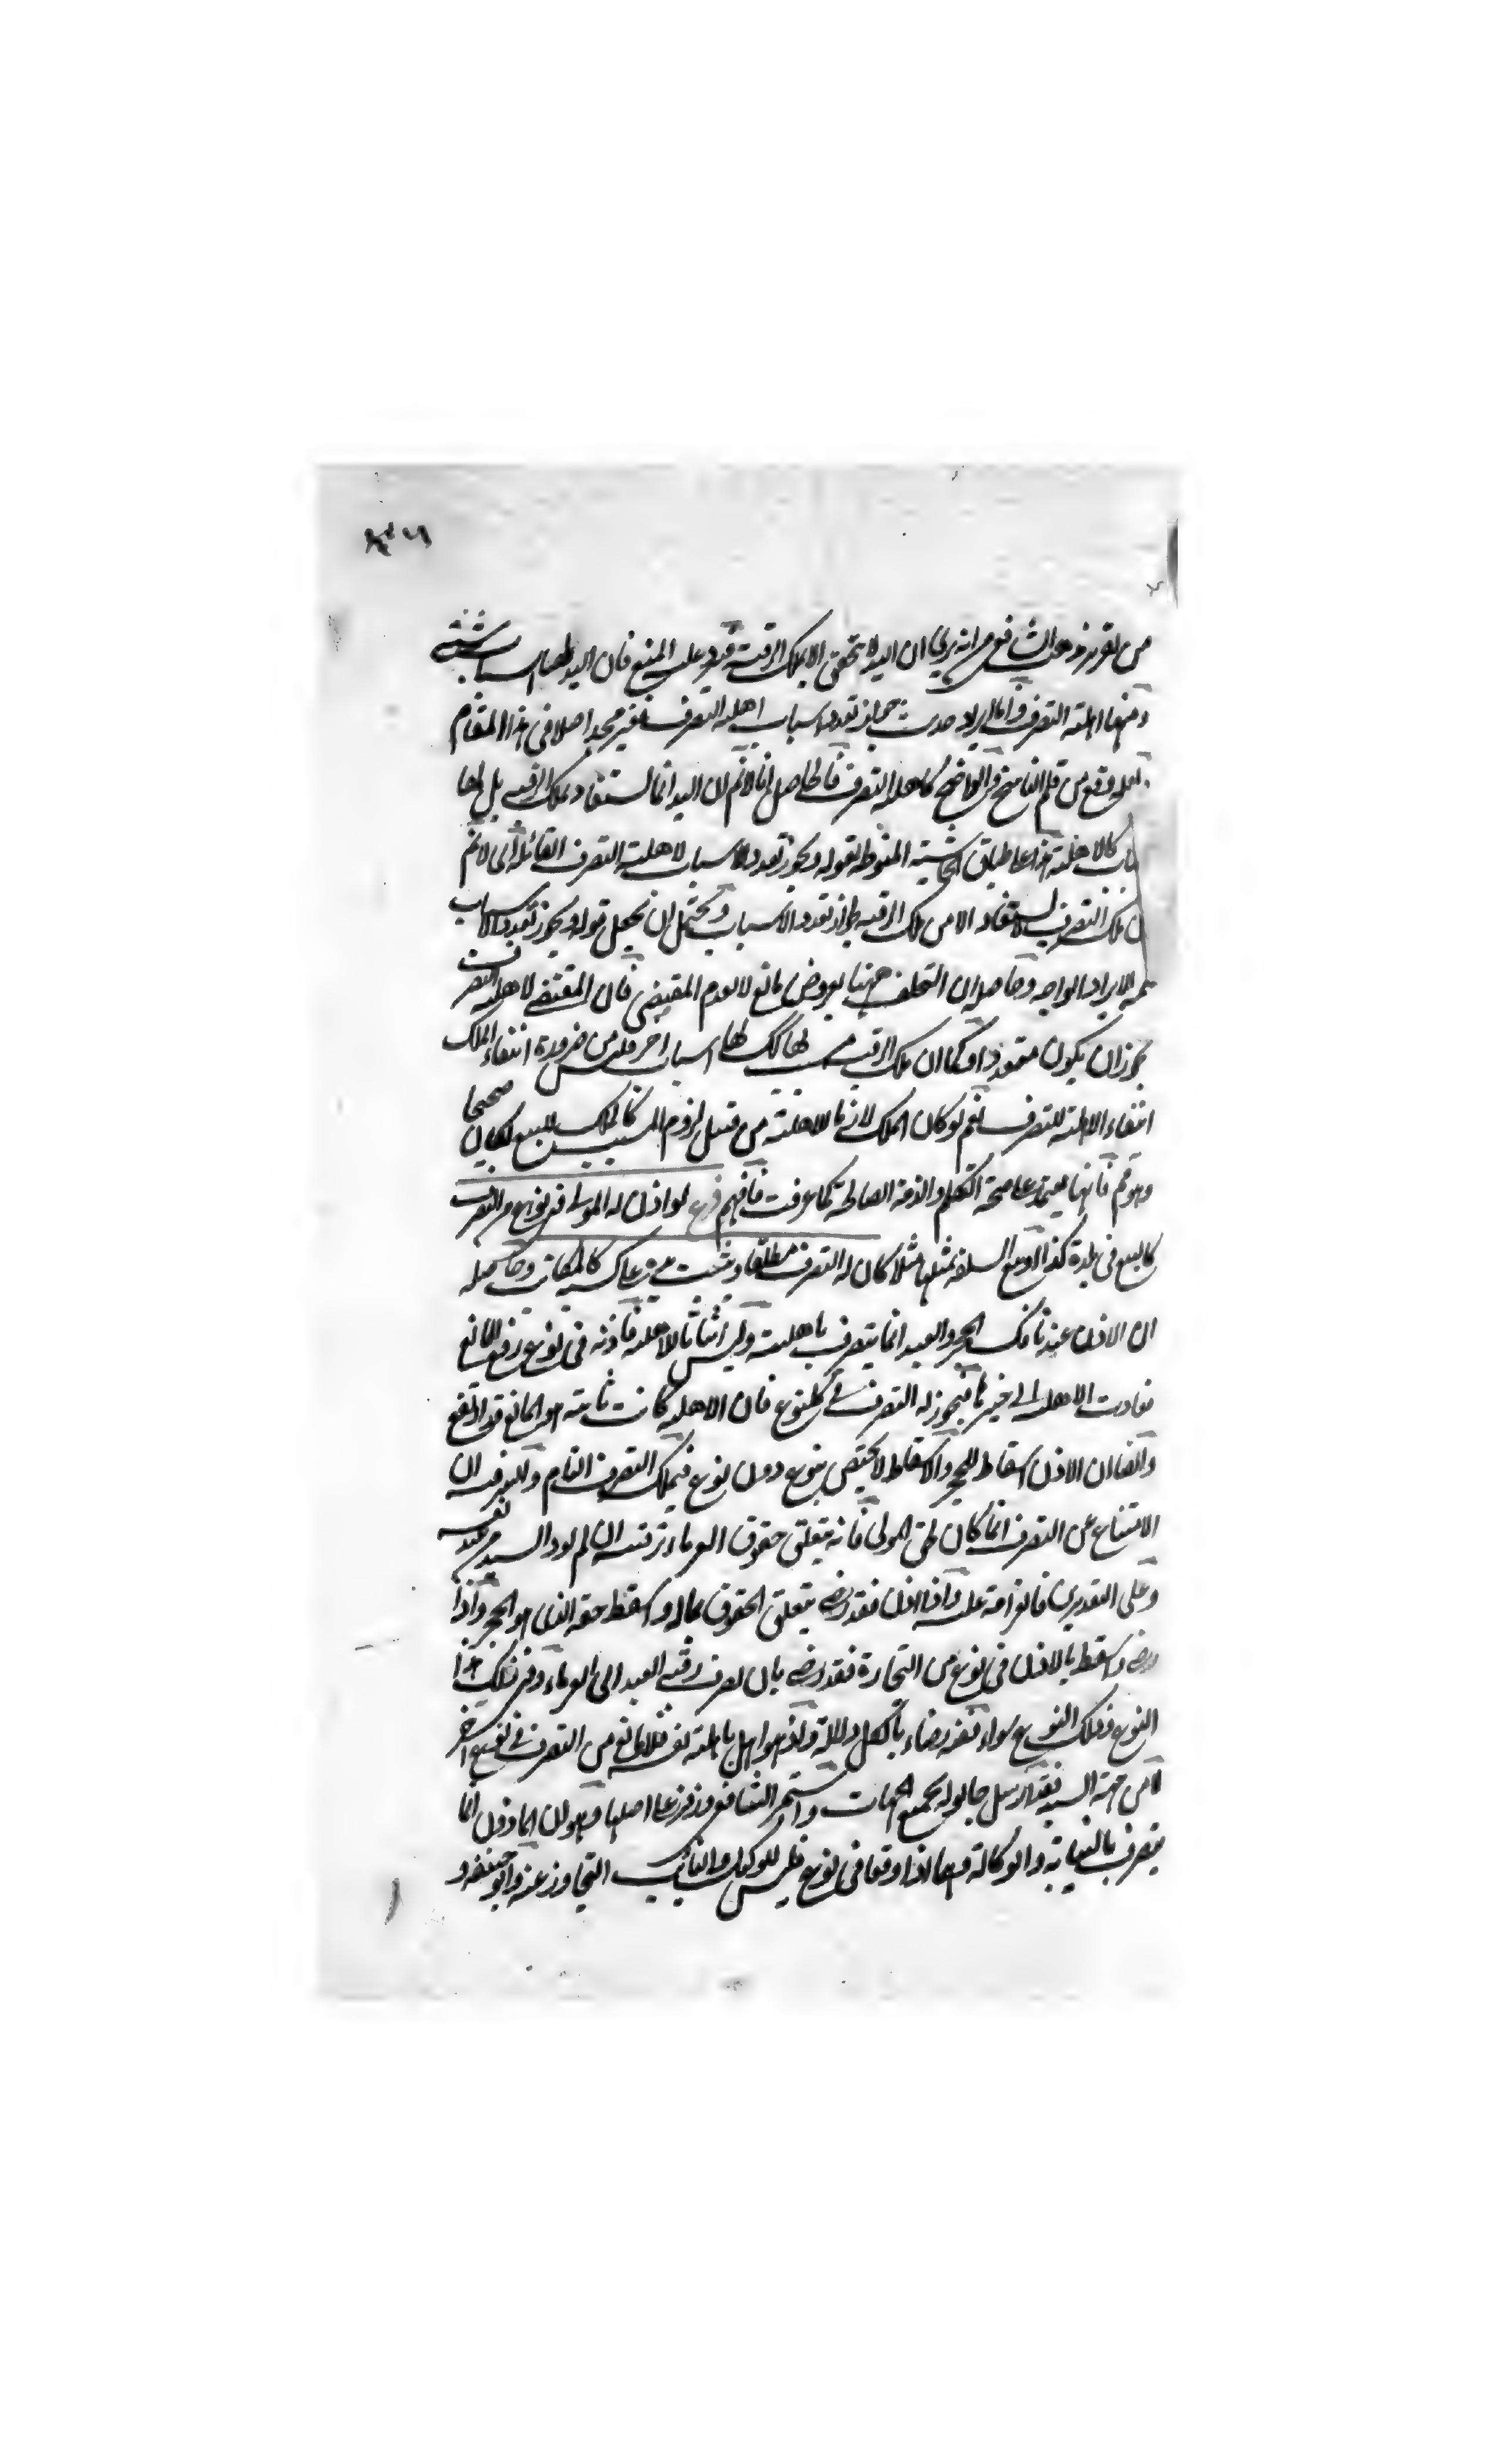 من تقرير مذهب الشافعي من انه يرى ان اليد لا تحقق الا بملك الرقبة فيرد عليه المنع فان اليد لها اسباب شتى
ومنها اهلية التصرف واما ايراد حديث جواز تعدد اسباب اهلية التصرف فغير مجد اصلا في هذا المقام
لعله وقع من قلم الناسخ والواضح كاهلية التصرف فالحاصل انا لانم ان اليد انما تستفاد بملك الرقبة بل لها
كالاهلية هذا على طباق الحاشية المنوطة بقوله ويجوز تعدد الاسباب لاهلية التصرف القائلة اى لانم
ان ملك التصرف لا يستفاد الا من ملك الرقبة لجواز تعدد الاسباب ويحتمل ان يجعل قوله ويجوز تعدد الاسباب
تتمة الايراد الواجه وحاصله ان التخلف ههنا بعروض مانع لا لعدم المقتضى فان المقتضى لاهلية التصرف
يجوز ان يكون متعددا وكما ان ملك الرقبة سبب لها كك لها اسباب اخر فليس من ضرورة انتفاء الملك
انتفاء الاهلية للتصرف نعم لو كان الملك لازما للاهلية من قبيل لزوم المسبب كالملك للبيع لكان صحيحا
وهو مم فانها معتمدة على صحة التكلم والذمة الصالحة كما عرفت فافهم فرع لو اذن له المولى في نوع من التصرف
كالبيع في بلدة كذا او بيع السلعة مثلها مثلا كان له التصرف مطلقا ويثبت يده على كسبه كالمكاتب وحاصله
ان الاذن عندنا فك الحجر والعبد انما يتصرف باهليته وليس اثباتا للاهلية فاذنه في نوع رفع للمانع
فعادت الاهلية الى خيرها فيجوز له التصرف في كل نوع فان الاهلية كانت ثابتة والمانع قد ارتفع
وايضا ان الاذن اسقاط للحجر والاسقاط لا يختص بنوع دون نوع فيملك التصرف التام والسر فيه ان
الامتناع عن التصرف انما كان لحق المولى فانه يتعلق حقوق الغرماء برقبته ان لم يود السيد من عند نفسه
وعلى التقديرين فالغرامة عليه واذا اذن فقد رضي بتعلق الحقوق بماله واسقط حقه الذي هو الحجر واذا
رضي واسقط بالاذن في نوع من التجارة فقد رضي بان يصرف رقبة العبد الى الغرماء وفي ذلك هذا
النوع وذلك النوع سواء فقد رضاء بالكل دلالة واذ هو اهل باهلية نفسه فلا مانع من التصرف في نوع آخر
لا من جهة السيد فقد ارسل حبله بجميع الجهات واستمر الشافعي وزفر على اصلهما وهو ان الماذون انما
يتصرف بالنيابة والوكالة وهما اذا وقعا في نوع فليس للوكيل والنائب التجاوز عنه وابو حنيفة و